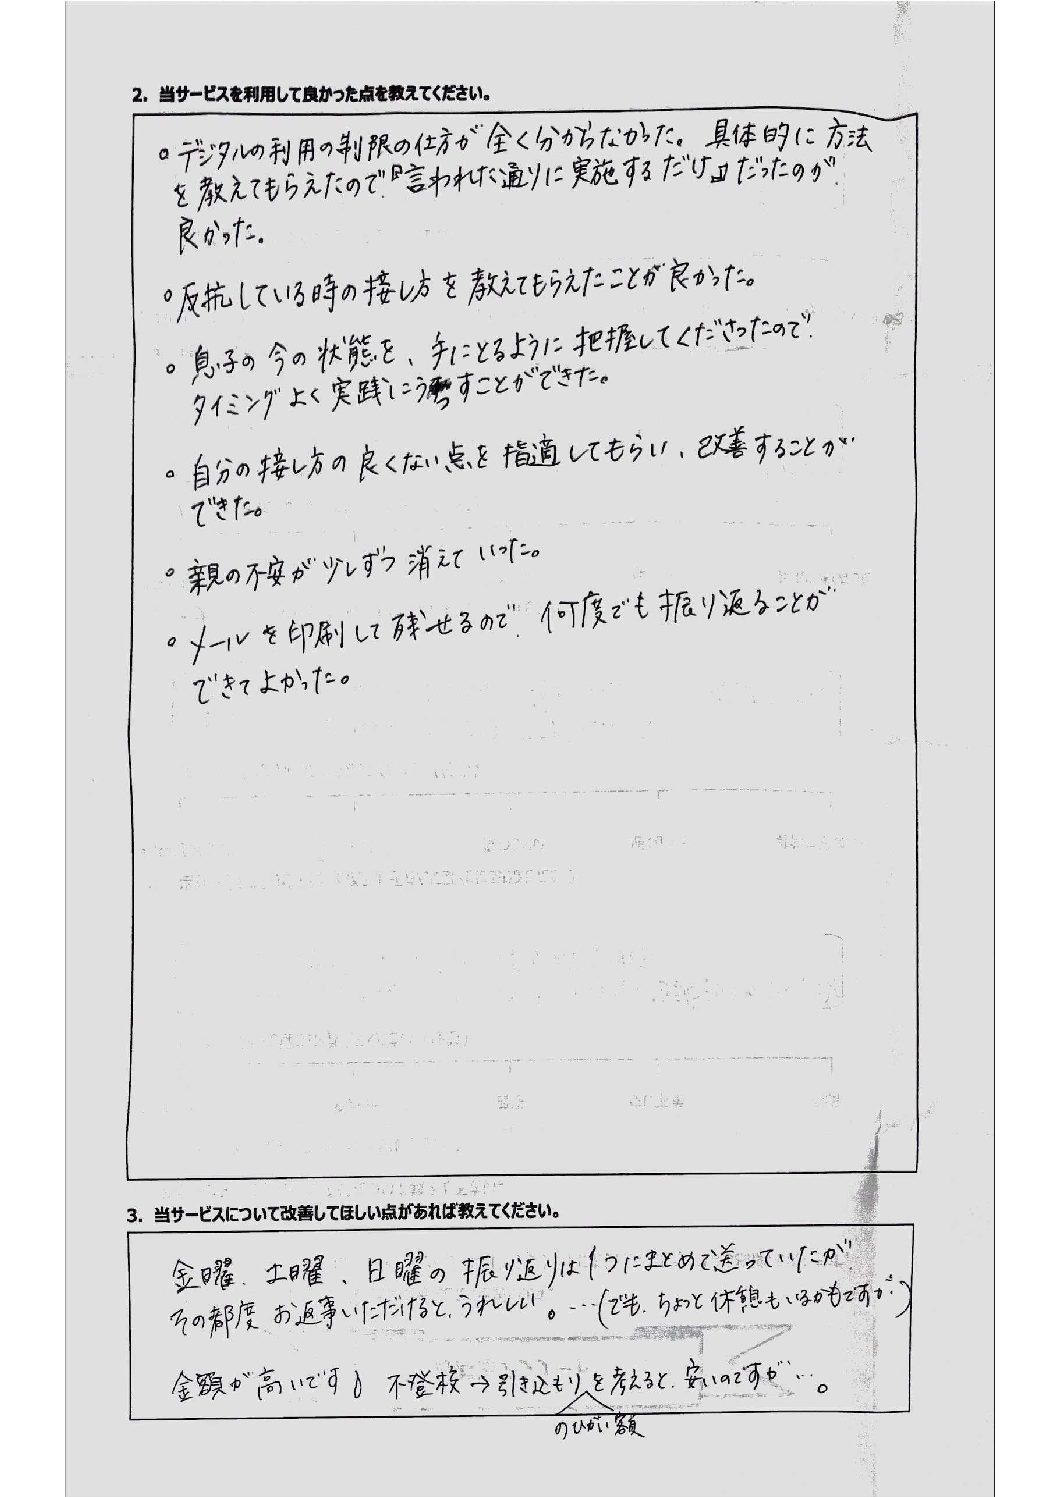 2. 当サービスを利用して良かった点を教えてください。
。デジタルの利用の制限の仕方が全く分からなかった。具体的に方法
を教えてもらえたので『言われた通りに実施するだけ』だったのが
良かった。
。反抗している時の接し方を教えてもらえたことが良かった。
。息子の今の状態を、手にとるように把握してくださったので
タイミングよく実践にうつすことができた。
。自分の接し方の良くない点を指適してもらい、改善することが
できた。
。親の不安が少しずつ消えていった。
。メールを印刷して残せるので、何度でも振り返ることが
できてよかった。
3. 当サービスについて改善してほしい点があれば教えてください。
金曜、土曜、日曜の振り返りは1つにまとめて送っていたが
その都度お返事いただけると、うれしい。…(でも、ちょっと休憩もいるかもですが)
金額が高いです♪ 不登校→引き込もりを考えると、安いのですが…。
のひがい額